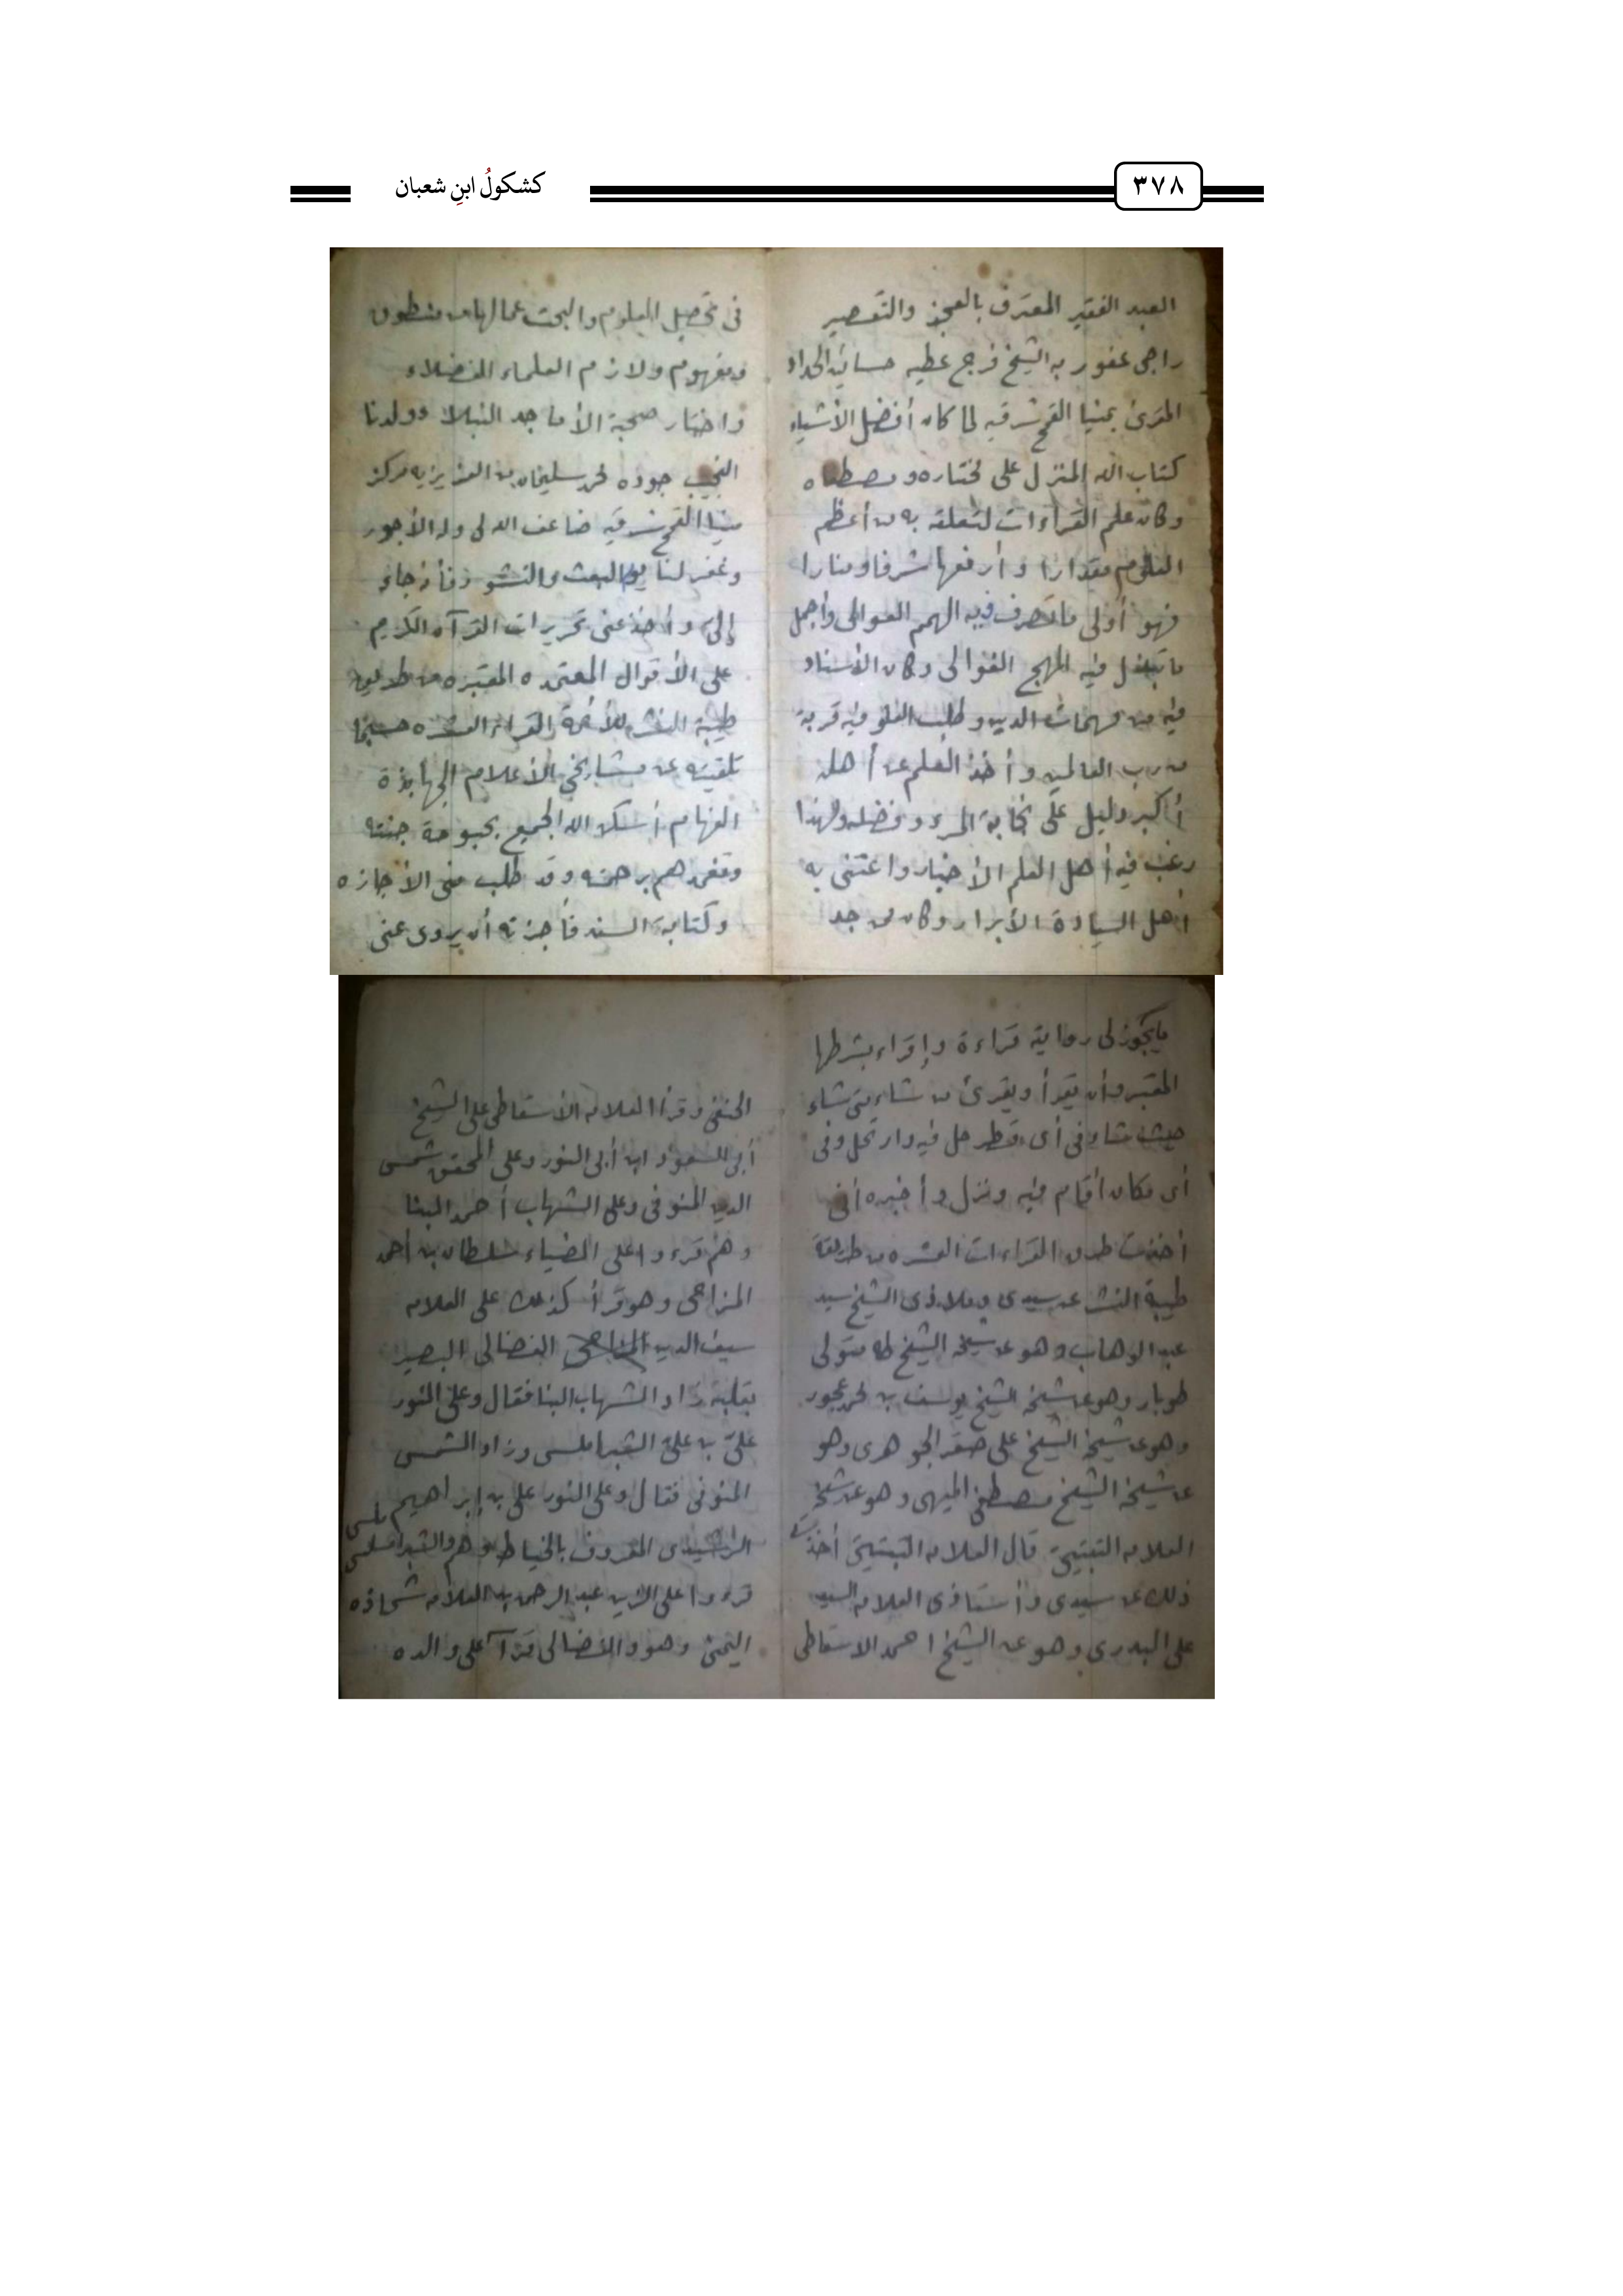 كشكولُ ابنِ شعبان
٣٧٨
العبد الفقير المعترف بالعجز والتقصير
راجى عفو ربه الشيخ فرج عطيه حسانين الحداد
المقرئ بمنيا القمح شرقيه لما كان أفضل الأشياء
كتاب الله المنزل على مختاره ومصطفاه
وكان علم القراءات لتعلقه به من أعظم
العلوم مقدارا وأرفعها شرفا ومنارا
فهو أولى ما تصرف فيه الهمم العوالى وأجمل
ما تبذل فيه المهج الغوالى وكان الأسناد
فيه من مهمات الدين وطلب العلو فيه قربة
من رب العالمين وأخذ العلم عن أهله
أكبر دليل على نجابة المرء وفضله ولهذا
رغب فيه أهل العلم الأخيار واعتنى به
أهل السيادة الأبرار وكان ممن جد
فى تحصيل العلوم والبحث عما لها من منطوق
ومفهوم ولازم العلماء الفضلاء
واختار صحبة الأماجد النبلاء وولدنا
النجيب جوده محمد سليمان من العزيزيه مركز
منيا القمح شرقيه ضاعف الله لى وله الأجور
وغفر لنا يوم البعث والنشور فأجاء
إلىّ وأخذ عنى تحريرات القرآن الكريم
على الأقوال المعتمده المعتبره من طريق
طيبة النشر للأئمة القراء العشره حسبما
تلقيته عن مشايخى الأعلام الجهابذة
الفهام أسكن الله الجميع بحبوحة جنته
وتغمدهم برحمته وقد طلب منى الأجازه
وكتابة السند فأجزته أن يروى عنى
ما يجوز لى روايته قراءة وإقراء بشرطها
المعتبر وأن يقرأ ويقرئ من شاء متى شاء
حيث شاء وفى أى قطر حل فيه وارتحل وفى
أى مكان أقام فيه ونزل وأخبره أنى
أخذت طرق القراءات العشره من طريقة
طيبة النشر عن سيدى وملاذى الشيخ سيد
عبد الوهاب وهو عن شيخه الشيخ طه متولى
طوبار وهو عن شيخه الشيخ يوسف بن محمد عجور
وهو عن شيخه الشيخ على صقر الجوهرى وهو
عن شيخه الشيخ مصطفى الميهى وهو عن شيخه
العلامه التبتيتى قال العلامه التبتيتى أخذت
ذلك عن سيدى وأستاذى العلامه السيد
على البدرى وهو عن الشيخ احمد الاسقاطى
الحنفى وقرأ العلامه الأسقاطى على الشيخ
أبى السعود ابن أبى النور وعلى المحقق شمس
الدين المنوفى وعلى الشهاب أحمد البنا
وهم قرءوا على الضياء سلطان بن أحمد
المزاحى وهو قرأ كذلك على العلامه
سيف الدين الفضالى البصير
بقلبه زاد الشهاب البنا فقال وعلى النور
علىّ بن علىّ الشبراملسى وزاد الشمس
المنوفى فقال وعلى النور على بن إبراهيم
الرشيدى المعروف بالخياط وهم والشبراملسى
قرءوا على الزين عبد الرحمن بن العلامه شحاذه
اليمنى وهو والفضالى قرآ على والده